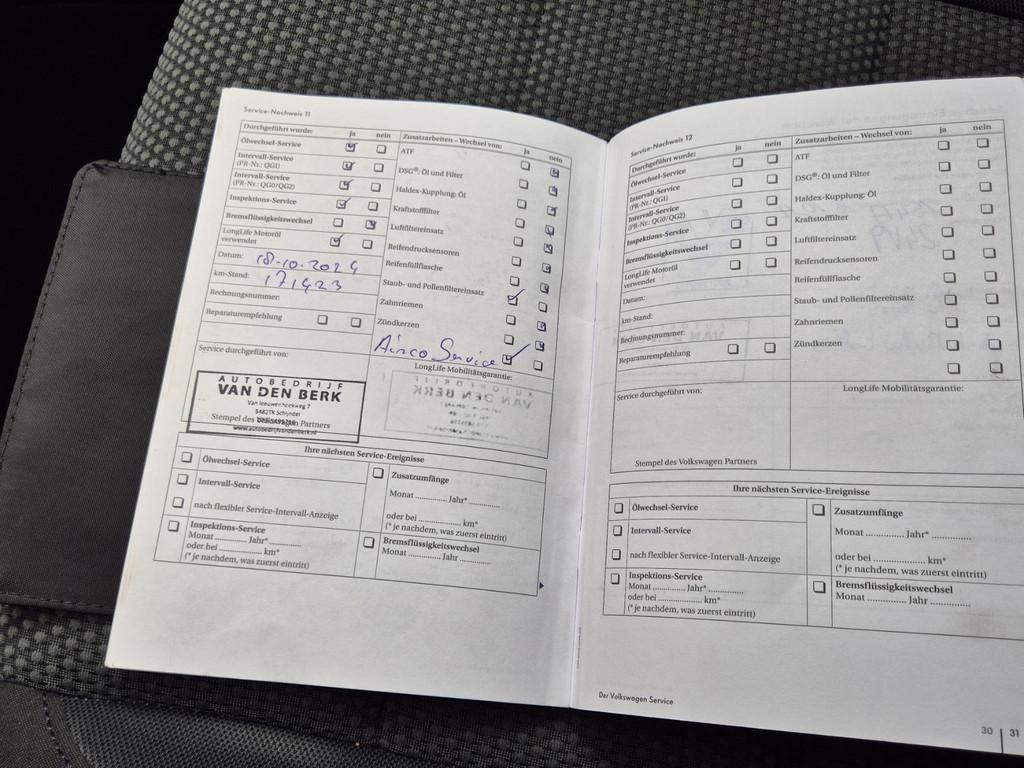 Service-Nachweis 11
Durchgeführt wurde: ja nein
Ölwechsel-Service
Intervall-Service
(PR-Nr.: QG1)
Intervall-Service
(PR-Nr.: QG0/QG2)
Inspektions-Service
Bremsflüssigkeitswechsel
LongLife Motoröl
verwendet
Datum: 18-10-2024
km-Stand: 171423
Rechnungsnummer:
Reparaturempfehlung
Zusatzarbeiten – Wechsel von: ja nein
ATF
DSG®: Öl und Filter
Haldex-Kupplung: Öl
Kraftstofffilter
Luftfiltereinsatz
Reifendrucksensoren
Reifenfüllflasche
Staub- und Pollenfiltereinsatz
Zahnriemen
Zündkerzen
Airco Service
Service durchgeführt von:
AUTOBEDRIJF
VAN DEN BERK
Van Leeuwenhoekweg 7
5482TK Schijndel
Stempel des Volkswagen Partners
www.autobedrijfvandenberk.nl
LongLife Mobilitätsgarantie:
Ihre nächsten Service-Ereignisse
Ölwechsel-Service
Intervall-Service
nach flexibler Service-Intervall-Anzeige
Inspektions-Service
Monat ............... Jahr* ...............
oder bei ............... km*
(* je nachdem, was zuerst eintritt)
Zusatzumfänge
Monat ............... Jahr* ...............
oder bei ............... km*
(* je nachdem, was zuerst eintritt)
Bremsflüssigkeitswechsel
Monat ............... Jahr ...............
Service-Nachweis 12
Durchgeführt wurde: ja nein
Ölwechsel-Service
Intervall-Service
(PR-Nr.: QG1)
Intervall-Service
(PR-Nr.: QG0/QG2)
Inspektions-Service
Bremsflüssigkeitswechsel
LongLife Motoröl
verwendet
Datum:
km-Stand:
Rechnungsnummer:
Reparaturempfehlung
Zusatzarbeiten – Wechsel von: ja nein
ATF
DSG®: Öl und Filter
Haldex-Kupplung: Öl
Kraftstofffilter
Luftfiltereinsatz
Reifendrucksensoren
Reifenfüllflasche
Staub- und Pollenfiltereinsatz
Zahnriemen
Zündkerzen
Service durchgeführt von:
Stempel des Volkswagen Partners
LongLife Mobilitätsgarantie:
Ihre nächsten Service-Ereignisse
Ölwechsel-Service
Intervall-Service
nach flexibler Service-Intervall-Anzeige
Inspektions-Service
Monat ............... Jahr* ...............
oder bei ............... km*
(* je nachdem, was zuerst eintritt)
Zusatzumfänge
Monat ............... Jahr* ...............
oder bei ............... km*
(* je nachdem, was zuerst eintritt)
Bremsflüssigkeitswechsel
Monat ............... Jahr ...............
Der Volkswagen Service
30 31